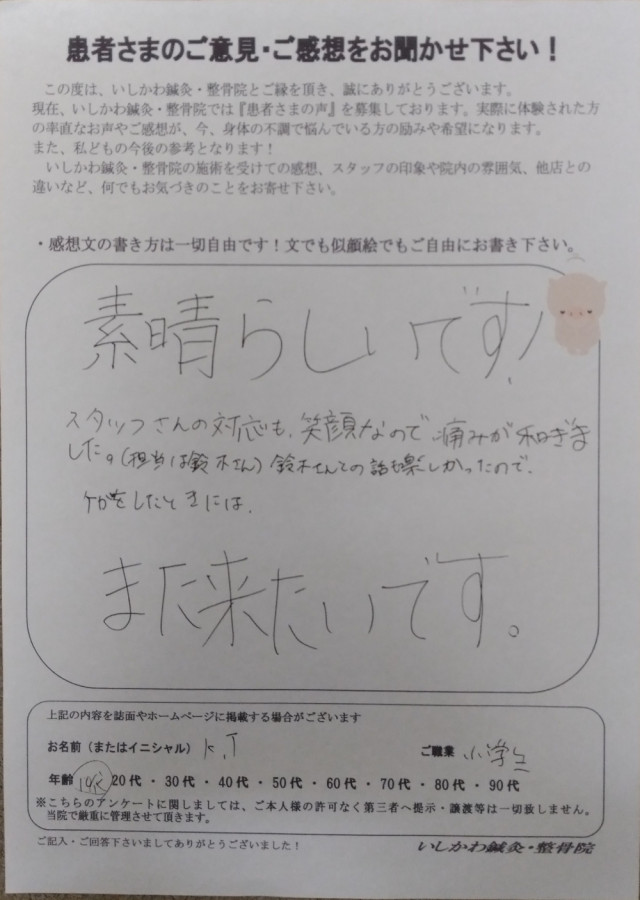 患者さまのご意見・ご感想をお聞かせ下さい！
この度は、いしかわ鍼灸・整骨院とご縁を頂き、誠にありがとうございます。
現在、いしかわ鍼灸・整骨院では『患者さまの声』を募集しております。実際に体験された方
の率直なお声やご感想が、今、身体の不調で悩んでいる方の励みや希望になります。
また、私どもの今後の参考となります！
いしかわ鍼灸・整骨院の施術を受けての感想、スタッフの印象や院内の雰囲気、他店との
違いなど、何でもお気づきのことをお寄せ下さい。
・感想文の書き方は一切自由です！文でも似顔絵でもご自由にお書き下さい。
素晴らしいです！
スタッフさんの対応も、笑顔なので痛みが和らぎま
した。(担当は鈴木さん)鈴木さんとの話も楽しかったので、
ケガをしたときには、
また来たいです。
上記の内容を誌面やホームページに掲載する場合がございます
お名前（またはイニシャル） K.T ご職業 小学生
年齢 10代 20代・30代・40代・50代・60代・70代・80代・90代
※こちらのアンケートに関しましては、ご本人様の許可なく第三者へ提示・譲渡等は一切致しません。
当院で厳重に管理させて頂きます。
ご記入・ご回答下さいましてありがとうございました！ いしかわ鍼灸・整骨院